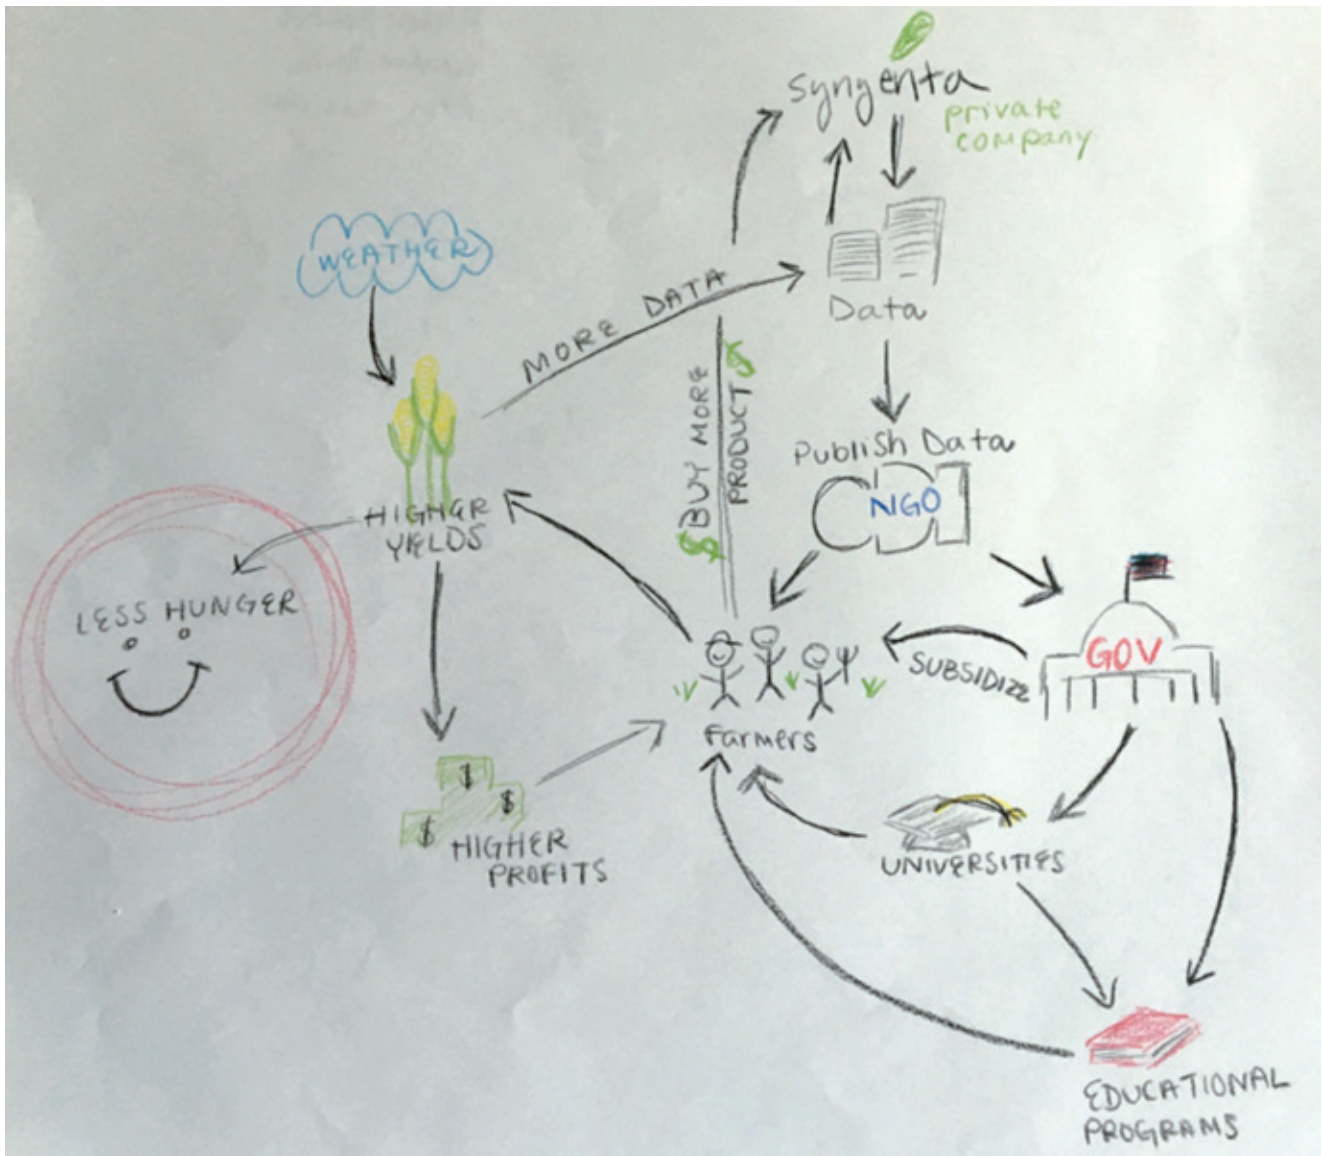 Syngenta
private
company
WEATHER
MORE DATA
Data
$ BUY MORE
PRODUCT $
Publish Data
NGO
HIGHER
YIELDS
LESS HUNGER
GOV
SUBSIDIZE
Farmers
$
$
$
HIGHER
PROFITS
UNIVERSITIES
EDUCATIONAL
PROGRAMS